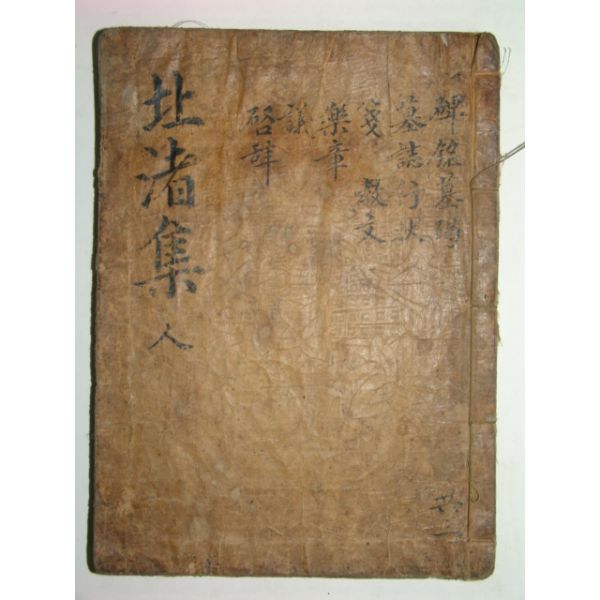 碑銘墓碣
墓誌行狀
箋 教文
樂章
議
啓辞
北渚集 人